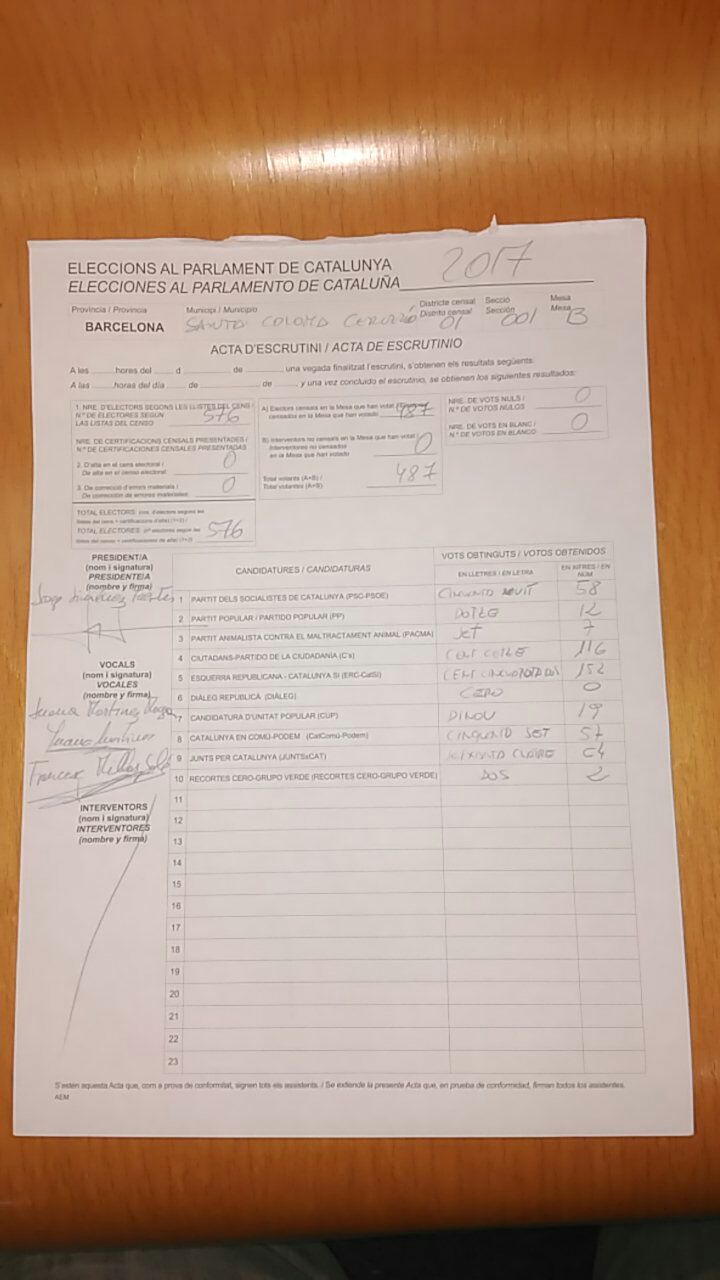 ELECCIONS AL PARLAMENT DE CATALUNYA 2017
ELECCIONES AL PARLAMENTO DE CATALUÑA
Provincia / Provincia Municipi / Municipio Districte censal Secció Mesa
Distrito censal Sección Mesa
BARCELONA SANTA COLOMA 01 001 B
ACTA D'ESCRUTINI / ACTA DE ESCRUTINIO
A les hores del d de de una vegada finalitzat l'escrutini, s'obtenen els resultats següents:
A las horas del día de de y una vez concluido el escrutinio, se obtienen los siguientes resultados:
1. NRE. D'ELECTORS SEGONS LES LLISTES DEL CENS /
N.º DE ELECTORES SEGÚN 576
LAS LISTAS DEL CENSO
NRE. DE CERTIFICACIONS CENSALS PRESENTADES /
N.º DE CERTIFICACIONES CENSALES PRESENTADAS
2. D'alta en el cens electoral / 0
De alta en el censo electoral
3. De correcció d'errors materials / 0
De corrección de errores materiales
TOTAL ELECTORS
TOTAL ELECTORES 576
A) Electors censats en la Mesa que han votat 487
censados en la Mesa que han votado
B) Interventors no censats en la Mesa que han votat 0
Interventores no censados
en la Mesa que han votado
Total votants (A+B) / 487
Total votantes (A+B)
NRE. DE VOTS NULS / 0
N.º DE VOTOS NULOS
NRE. DE VOTS EN BLANC / 0
N.º DE VOTOS EN BLANCO
PRESIDENT/A
(nom i signatura)
PRESIDENTE/A
(nombre y firma)
VOCALS
(nom i signatura)
VOCALES
(nombre y firma)
Juana Martinez
Francesc
INTERVENTORS
(nom i signatura)
INTERVENTORES
(nombre y firma)
CANDIDATURES / CANDIDATURAS VOTS OBTINGUTS / VOTOS OBTENIDOS
EN LLETRES / EN LETRA EN XIFRES / EN NÚM
1 PARTIT DELS SOCIALISTES DE CATALUNYA (PSC-PSOE) 58
2 PARTIT POPULAR / PARTIDO POPULAR (PP) DOTZE 12
3 PARTIT ANIMALISTA CONTRA EL MALTRACTAMENT ANIMAL (PACMA) SET 7
4 CIUTADANS-PARTIDO DE LA CIUDADANÍA (C's) 116
5 ESQUERRA REPUBLICANA - CATALUNYA SI (ERC-CatSí) 152
6 DIÀLEG REPUBLICÀ (DIÀLEG) CERO 0
7 CANDIDATURA D'UNITAT POPULAR (CUP) DINOU 19
8 CATALUNYA EN COMÚ-PODEM (CatComú-Podem) SET 57
9 JUNTS PER CATALUNYA (JUNTSxCAT) 64
10 RECORTES CERO-GRUPO VERDE (RECORTES CERO-GRUPO VERDE) DOS 2
11
12
13
14
15
16
17
18
19
20
21
22
23
S'estén aquesta Acta que, com a prova de conformitat, signen tots els assistents. / Se extiende la presente Acta que, en prueba de conformidad, firman todos los asistentes.
AEM